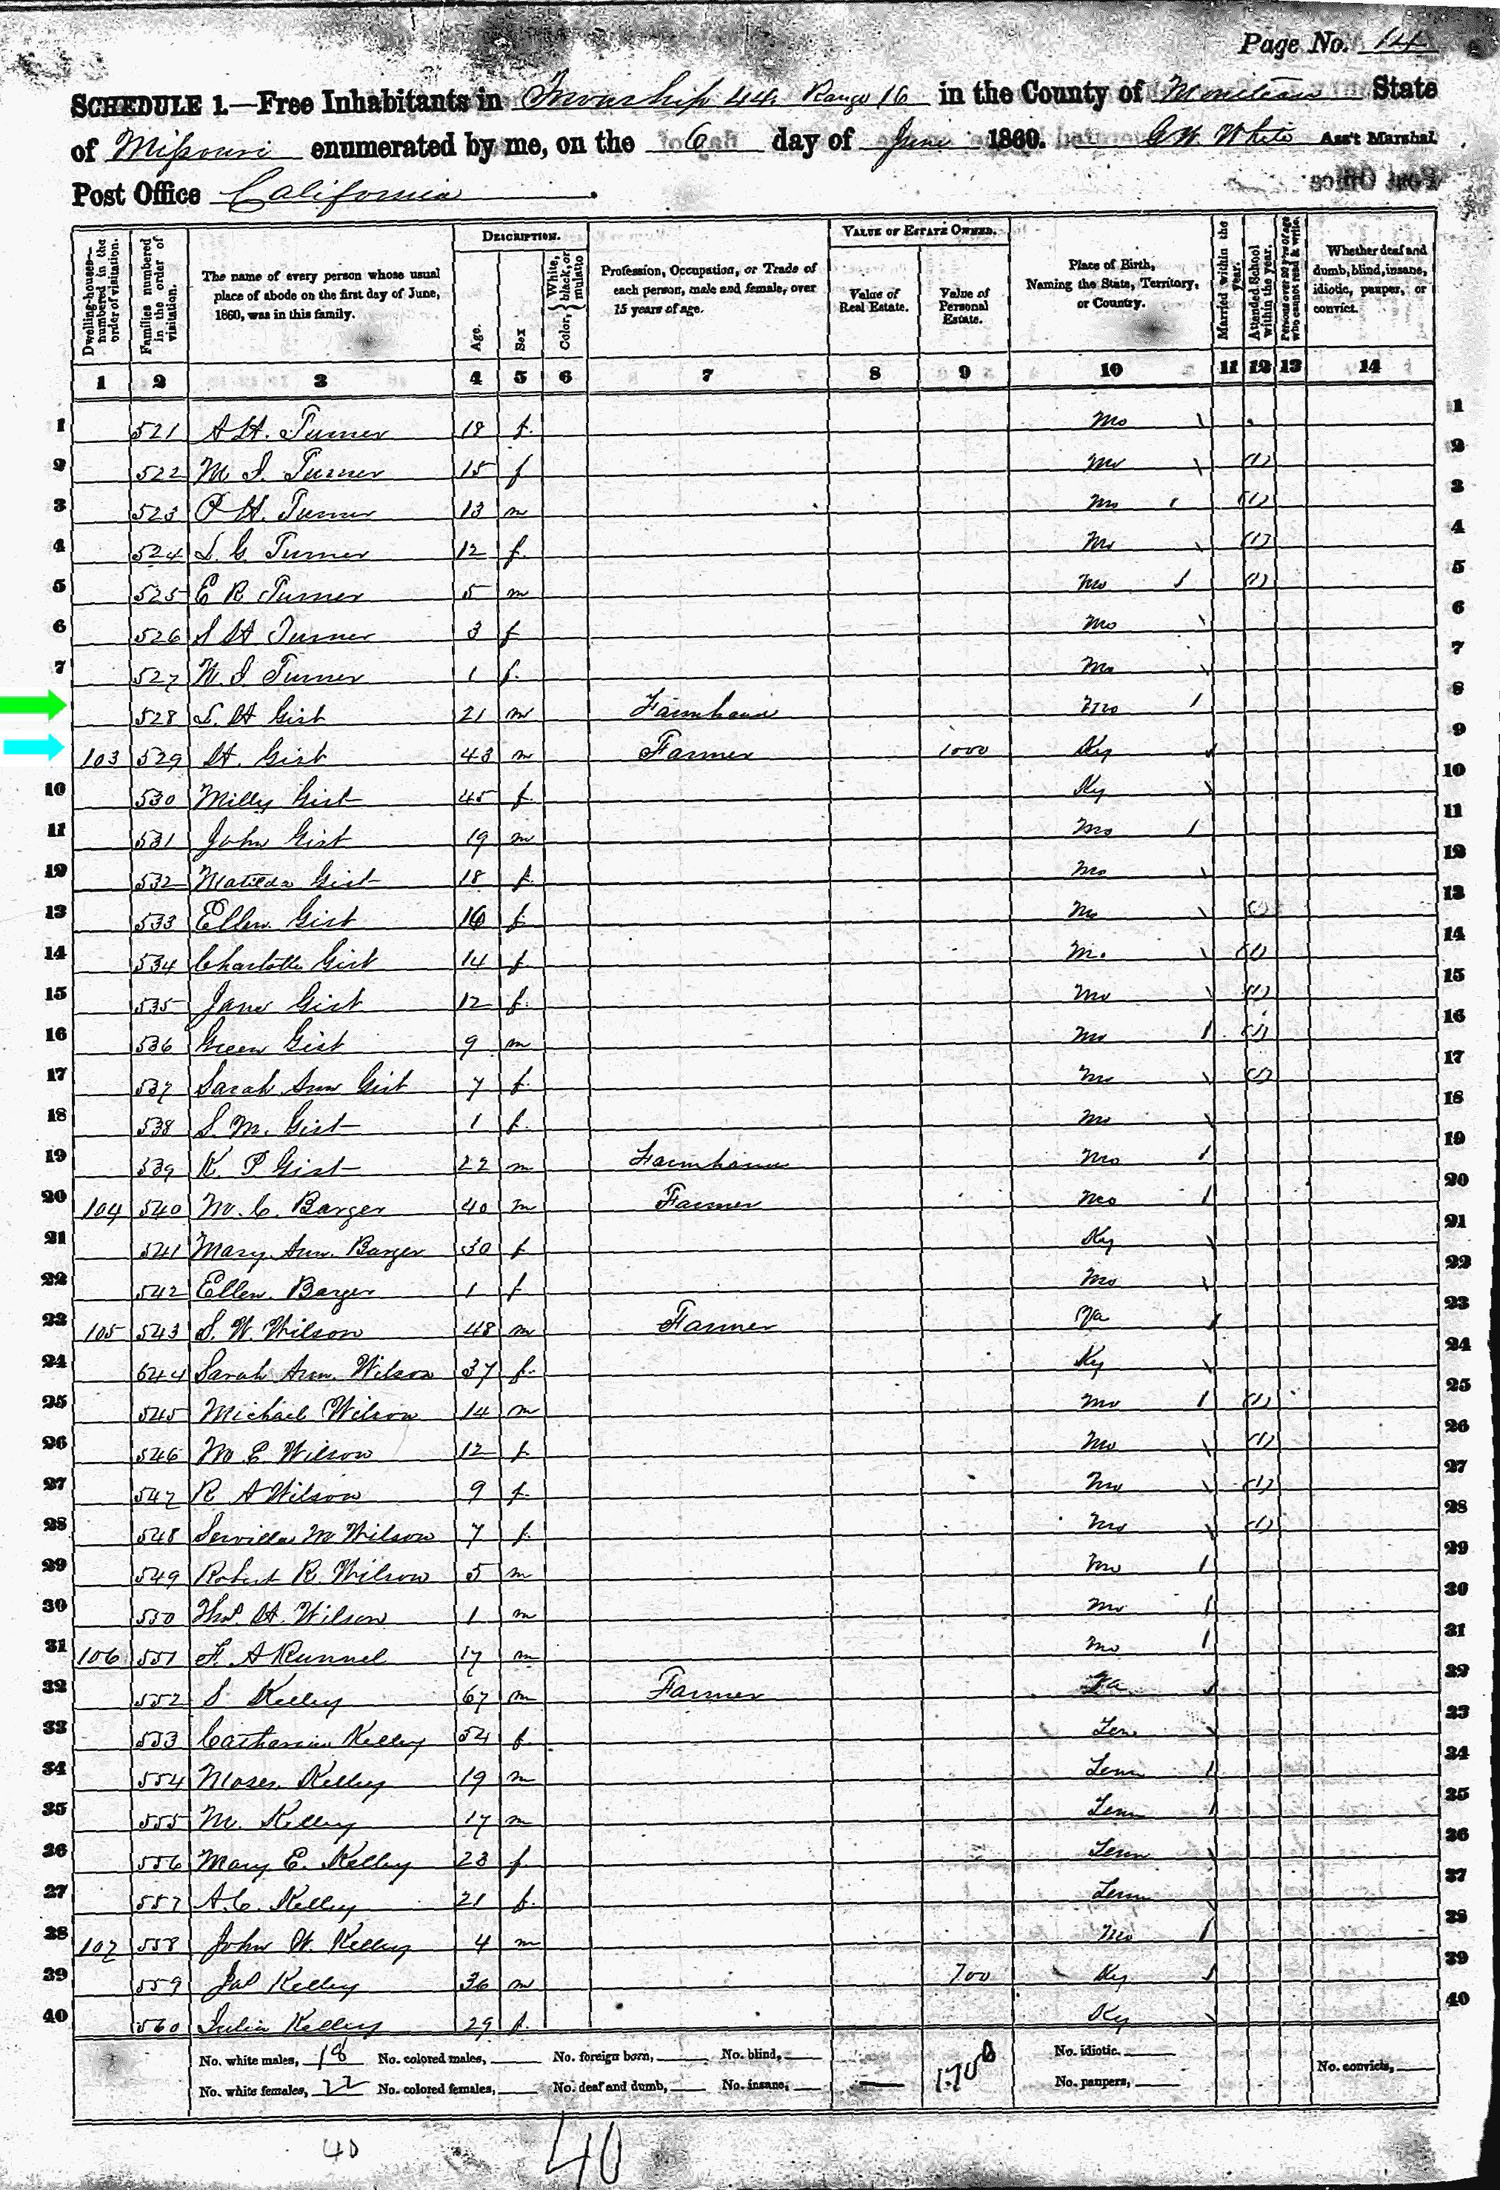 Page No. 14
SCHEDULE 1.—Free Inhabitants in Township 44 Range 16 in the County of Moniteau State
of Missouri enumerated by me, on the 6 day of June 1860. G. W. White Ass't Marshal.
Post Office California.
Dwelling-houses—numbered in the order of visitation.
Families numbered in the order of visitation.
The name of every person whose usual place of abode on the first day of June, 1860, was in this family.
DESCRIPTION.
Age.
Sex
Color, White, black, or mulatto
Profession, Occupation, or Trade of each person, male and female, over 15 years of age.
VALUE OF ESTATE OWNED.
Value of Real Estate.
Value of Personal Estate.
Place of Birth, Naming the State, Territory, or Country.
Married within the year.
Attended School within the year.
Persons over 20 y'rs of age who cannot read & write.
Whether deaf and dumb, blind, insane, idiotic, pauper, or convict.
1 2 3 4 5 6 7 8 9 10 11 12 13 14
1 521 A H. Turner 18 f. Mo 1
2 522 M I. Turner 15 f Mo (1) 2
3 523 P H. Turner 13 m Mo (1) 3
4 524 L. G. Turner 12 f. Mo (1) 4
5 525 E R Turner 5 m Mo (1) 5
6 526 S H Turner 3 f Mo 6
7 527 N. I. Turner 1 f. Mo 7
8 528 L. H Gist 21 m Farmhand Mo 8
9 103 529 H. Gist 43 m Farmer 1000 Ky 9
10 530 Milly Gist 45 f. Ky 10
11 531 John Gist 19 m Mo 11
12 532 Matilda Gist 18 f. Mo 12
13 533 Ellen Gist 16 f. Mo (1) 13
14 534 Charlotte Gist 14 f Mo (1) 14
15 535 Jane Gist 12 f. Mo (1) 15
16 536 Green Gist 9 m Mo (1) 16
17 537 Sarah Ann Gist 7 f. Mo (1) 17
18 538 S. M. Gist 1 f. Mo 18
19 539 K. P Gist 22 m Farmhand Mo 19
20 104 540 M. C. Barger 40 m Farmer Mo 20
21 541 Mary Ann. Barger 30 f Ky 21
22 542 Ellen. Barger 1 f Mo 22
23 105 543 S. W. Wilson 48 m Farmer Va 23
24 544 Sarah Ann. Wilson 37 f. Ky 24
25 545 Michael Wilson 14 m Mo (1) 25
26 546 M E. Wilson 12 f. Mo (1) 26
27 547 R A Wilson 9 f. Mo (1) 27
28 548 Servilla M Wilson 7 f. Mo (1) 28
29 549 Robert R. Wilson 5 m Mo 29
30 550 Thos. H. Wilson 1 m Mo 30
31 106 551 F. A Runnel 17 m Mo 31
32 552 S Kelley 67 m Farmer 32
33 553 Catharine Kelley 54 f. Ten 33
34 554 Moses. Kelley 19 m Tenn 34
35 555 M. Kelley 17 m Tenn 35
36 556 Mary E. Kelley 23 f Tenn 36
37 557 A. C. Kelley 21 f. Tenn 37
38 107 558 John W. Kelley 4 m Mo 38
39 559 Jas Kelley 36 m 700 Ky 39
40 560 Julia Kelley 29 f. Ky 40
No. white males, 18 No. colored males, No. foreign born, No. blind, No. idiotic. No. convicts,
No. white females, 22 No. colored females, No. deaf and dumb, No. insane, — 1700 No. paupers,
40 40